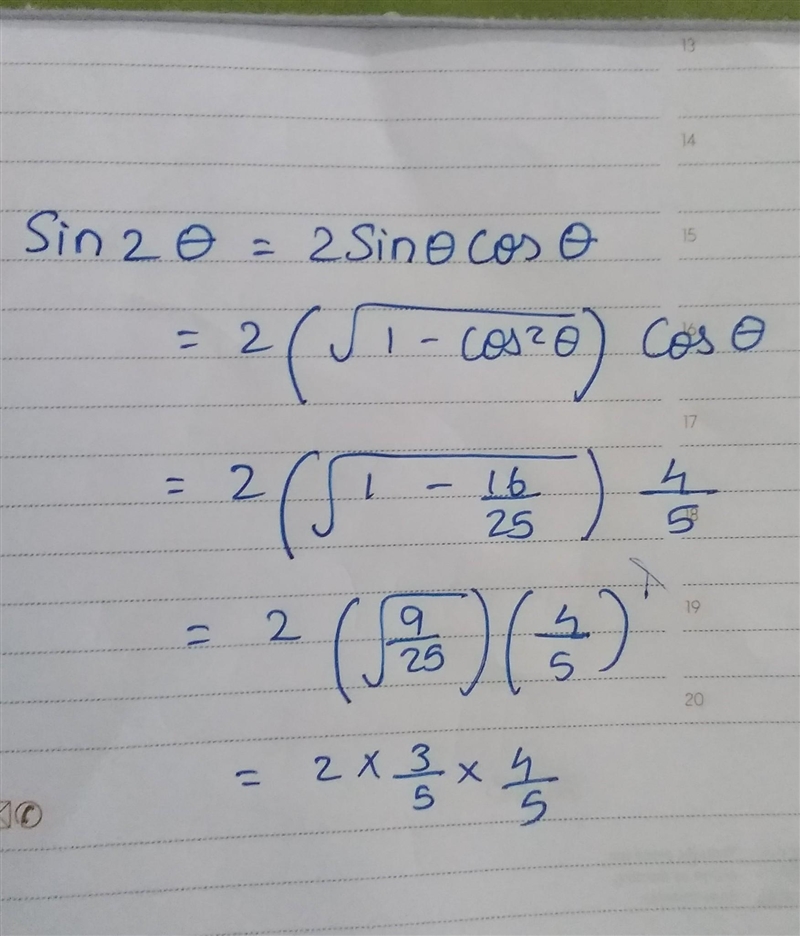 13
14
Sin 2 θ = 2 Sin θ cos θ 15
= 2 (√(1 - cos²θ)) cos θ 16
17
= 2 (√(1 - 16/25)) 4/5 18
= 2 (√(9/25)) (4/5) 19
20
= 2 × 3/5 × 4/5